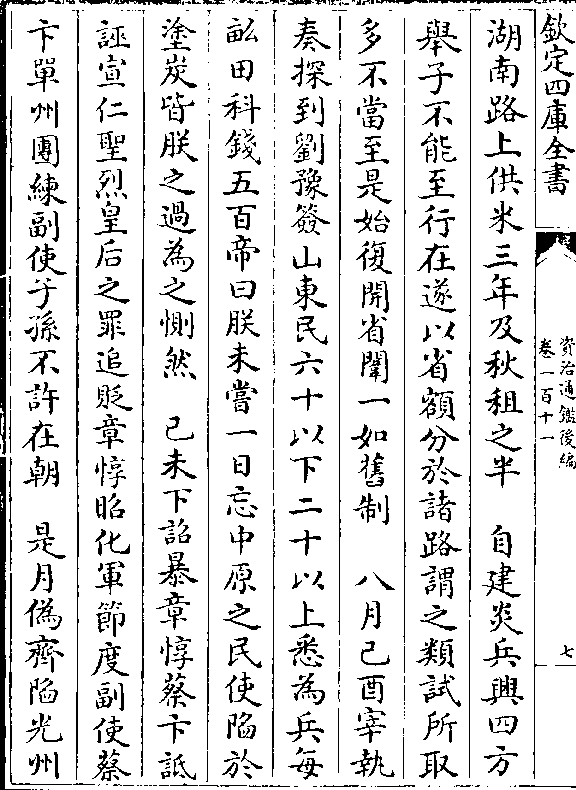 欽定四庫全書
資治通鑑後編
卷一百十一
七
湖南路上供米三年及秋租之半　自建炎兵興四方
舉子不能至行在遂以省額分於諸路謂之類試所取
多不當至是始復開省闈一如舊制　八月己酉宰執
奏探到劉豫簽山東民六十以下二十以上悉為兵每
畝田科錢五百帝曰朕未嘗一日忘中原之民使陷於
塗炭皆朕之過為之惻然　己未下詔暴章惇蔡卞詆
誣宣仁聖烈皇后之罪追貶章惇昭化軍節度副使蔡
卞單州團練副使子孫不許在朝　是月偽齊陷光州